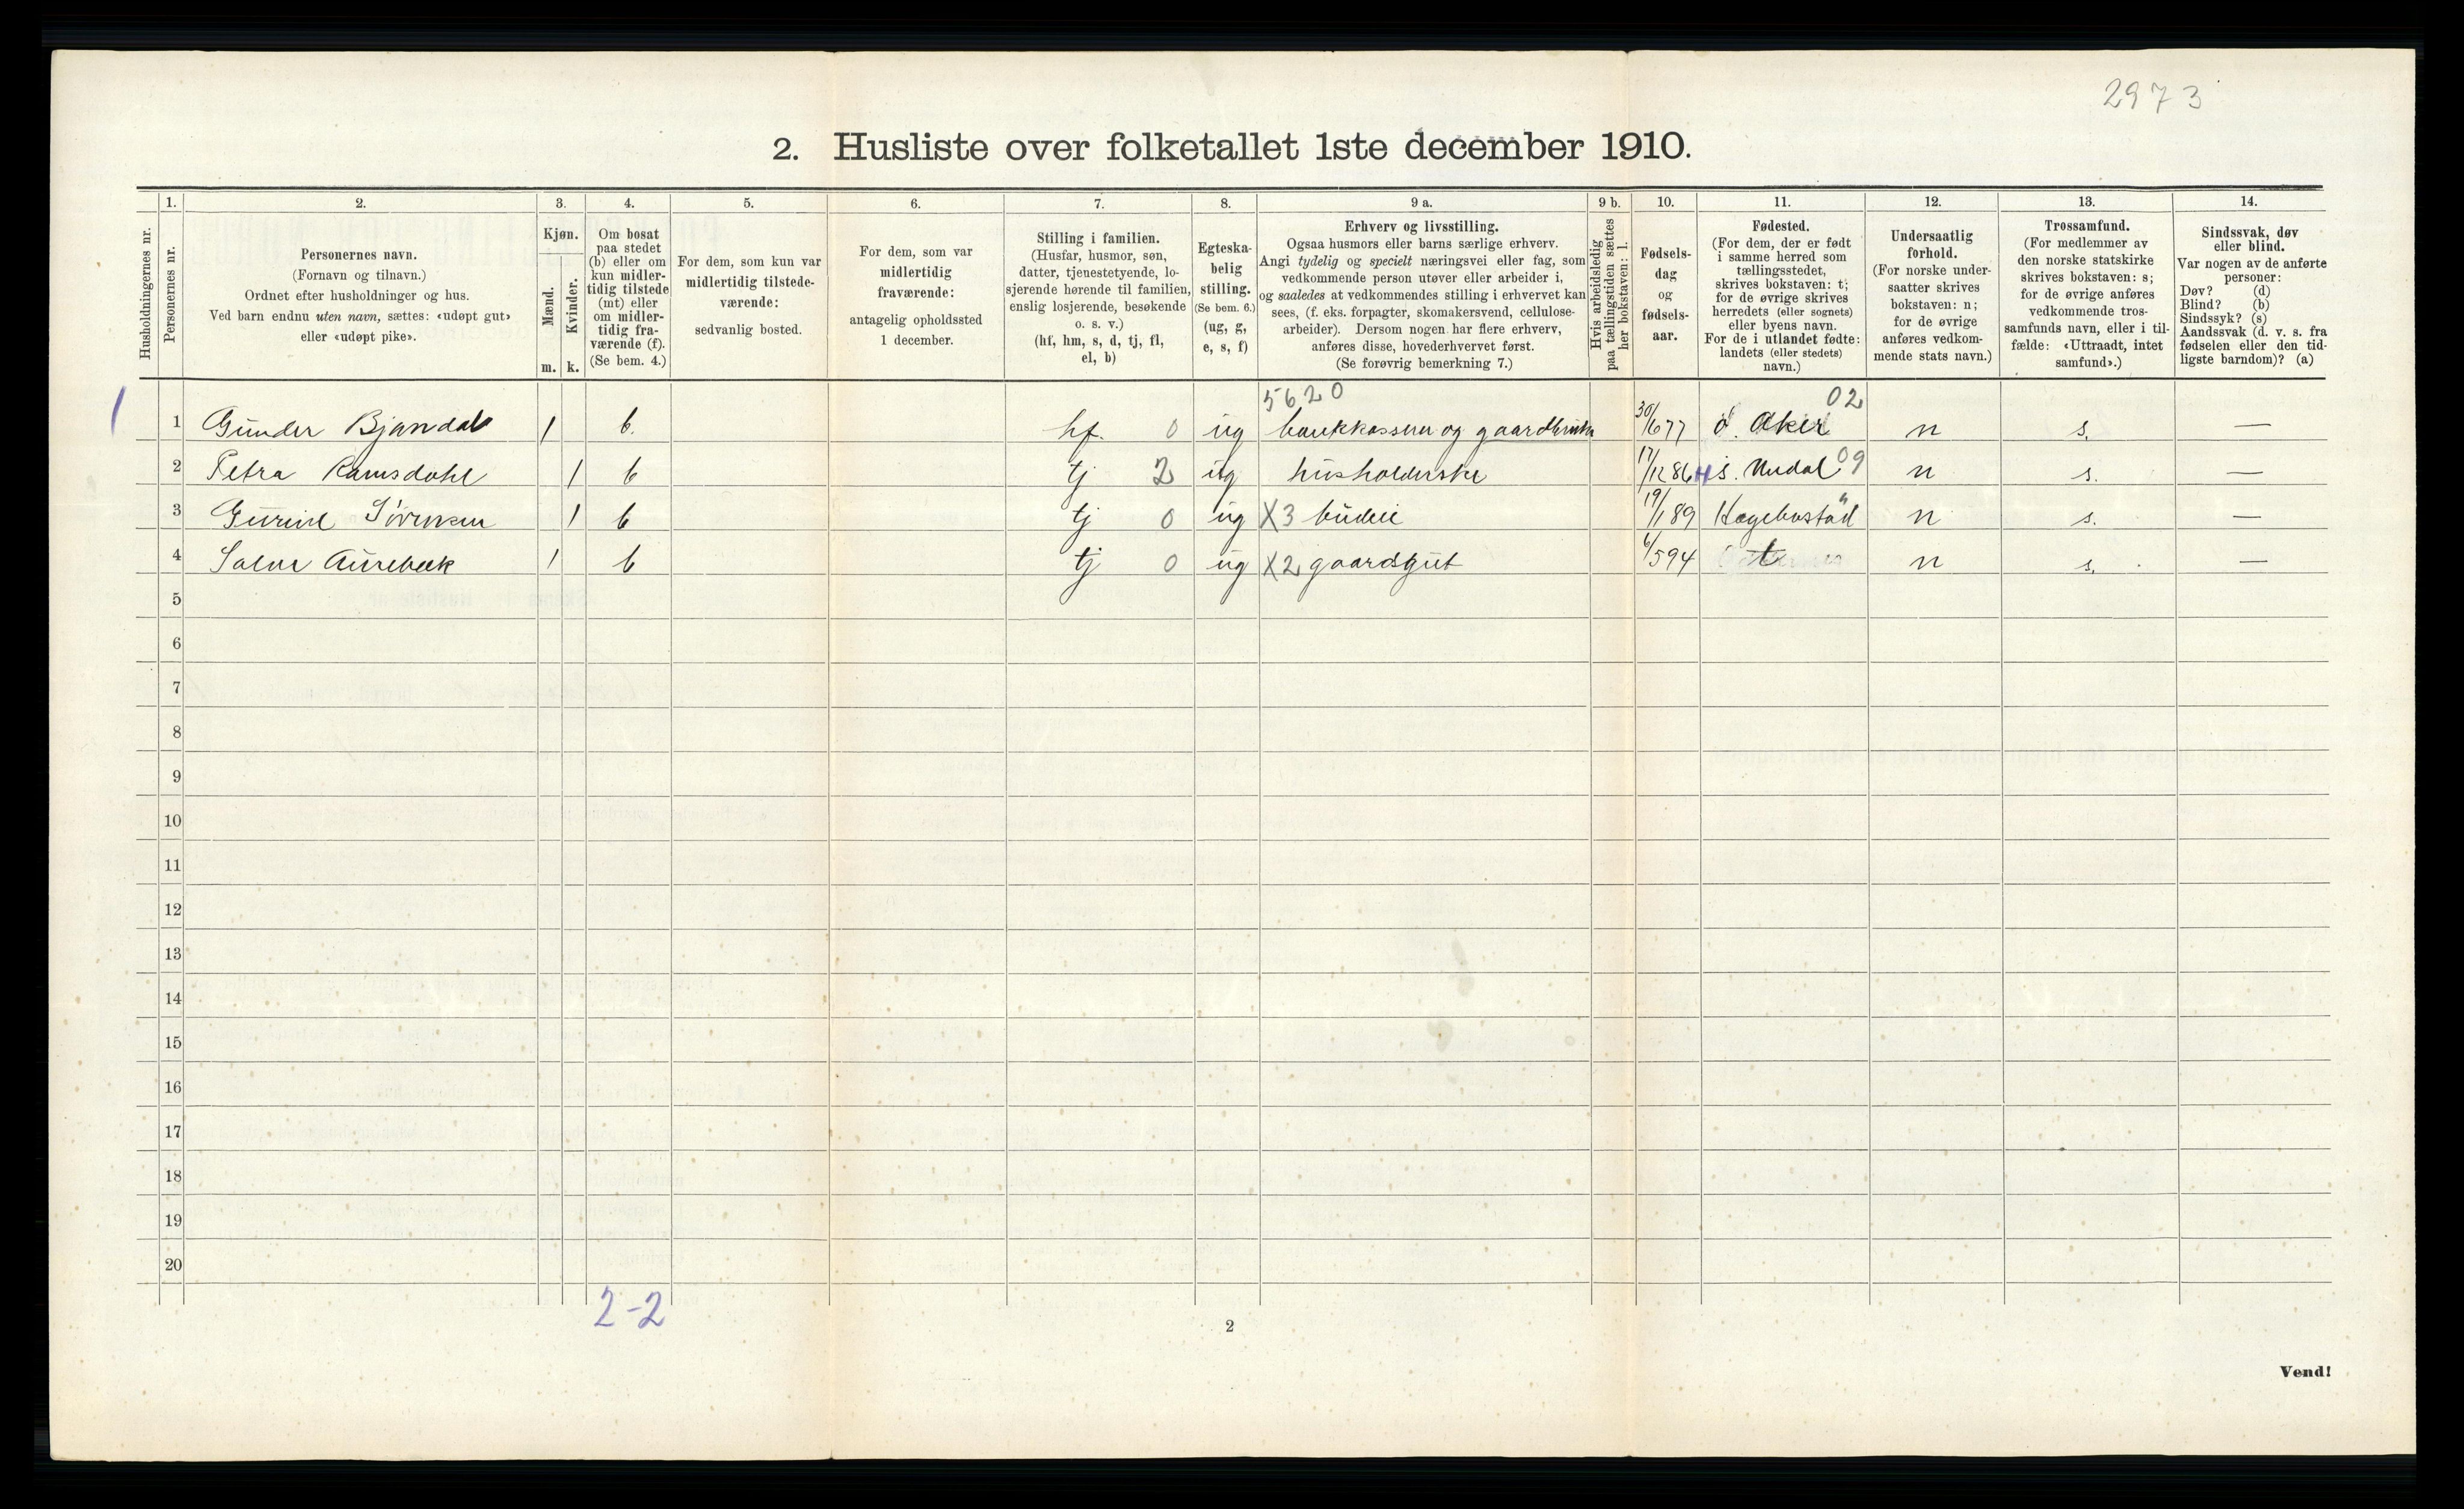 2973
2. Husliste over folketallet 1ste december 1910.
Husholdningernes nr.
1.
Personernes nr.
2.
Personernes navn.
(Fornavn og tilnavn.)
Ordnet efter husholdninger og hus.
Ved barn endnu uten navn, sættes: «udøpt gut»
eller «udøpt pike».
3.
Kjøn.
Mænd.
Kvinder.
m. k.
4.
Om bosat
paa stedet
(b) eller om
kun midler-
tidig tilstede
(mt) eller
om midler-
tidig fra-
værende (f).
(Se bem. 4.)
5.
For dem, som kun var
midlertidig tilstede-
værende:
sedvanlig bosted.
6.
For dem, som var
midlertidig
fraværende:
antagelig opholdssted
1 december.
7.
Stilling i familien.
(Husfar, husmor, søn,
datter, tjenestetyende, lo-
sjerende hørende til familien,
enslig losjerende, besøkende
o. s. v.)
(hf, hm, s, d, tj, fl,
el, b)
8.
Egteska-
belig
stilling.
(Se bem. 6.)
(ug, g,
e, s, f)
9 a.
Erhverv og livsstilling.
Ogsaa husmors eller barns særlige erhverv.
Angi tydelig og specielt næringsvei eller fag, som
vedkommende person utøver eller arbeider i,
og saaledes at vedkommendes stilling i erhvervet kan
sees, (f. eks. forpagter, skomakersvend, cellulose-
arbeider). Dersom nogen har flere erhverv,
anføres disse, hovederhvervet først.
(Se forøvrig bemerkning 7.)
9 b.
Hvis arbeidsledig
paa tællingstiden sættes
her bokstaven: l.
10.
Fødsels-
dag
og
fødsels-
aar.
11.
Fødested.
(For dem, der er født
i samme herred som
tællingsstedet,
skrives bokstaven: t;
for de øvrige skrives
herredets (eller sognets)
eller byens navn.
For de i utlandet fødte:
landets (eller stedets)
navn.)
12.
Undersaatlig
forhold.
(For norske under-
saatter skrives
bokstaven: n;
for de øvrige
anføres vedkom-
mende stats navn.)
13.
Trossamfund.
(For medlemmer av
den norske statskirke
skrives bokstaven: s;
for de øvrige anføres
vedkommende tros-
samfunds navn, eller i til-
fælde: «Uttraadt, intet
samfund».)
14.
Sindssvak, døv
eller blind.
Var nogen av de anførte
personer:
Døv? (d)
Blind? (b)
Sindssyk? (s)
Aandssvak (d. v. s. fra
fødselen eller den tid-
ligste barndom)? (a)
5620 02
1 1 Gunder Bjørndal 1 b. hf. 0 ug bankkasserer og gaardbruker 30/677 ø. Aker n s. —
2 Petra Ramsdahl 1 b tj 2 ug husholderske 17/1286 s. Undal 09 n s. —
3 Gurine Sørensen 1 b tj 0 ug X3 budeie 19/189 Hægebostad " n s. —
4 Salve Aurebæk 1 b tj 0 ug X2 gaardsgut 6/594 t n s. —
5
6
7
8
9
10
11
12
13
14
15
16
17
18
19
20
2-2
2
Vend!